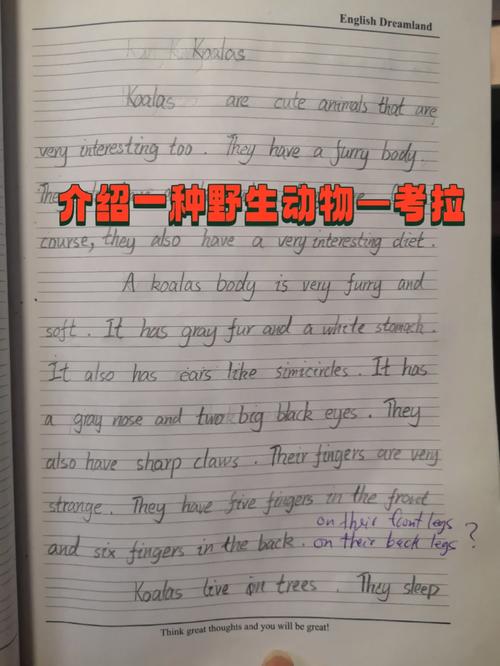 English Dreamland
Koalas
Koalas are cute animals that are
very interesting too. They have a furry body.
介绍一种野生动物—考拉
course, they also have a very interesting diet.
A koalas body is very furry and
soft. It has gray fur and a white stomach.
It also has ears like simicircles. It has
a gray nose and two big black eyes. They
also have sharp claws. Their fingers are very
strange. They have five fingers in the front
on their front legs
and six fingers in the back. on their back legs ?
Koalas live on trees. They sleep
Think great thoughts and you will be great!